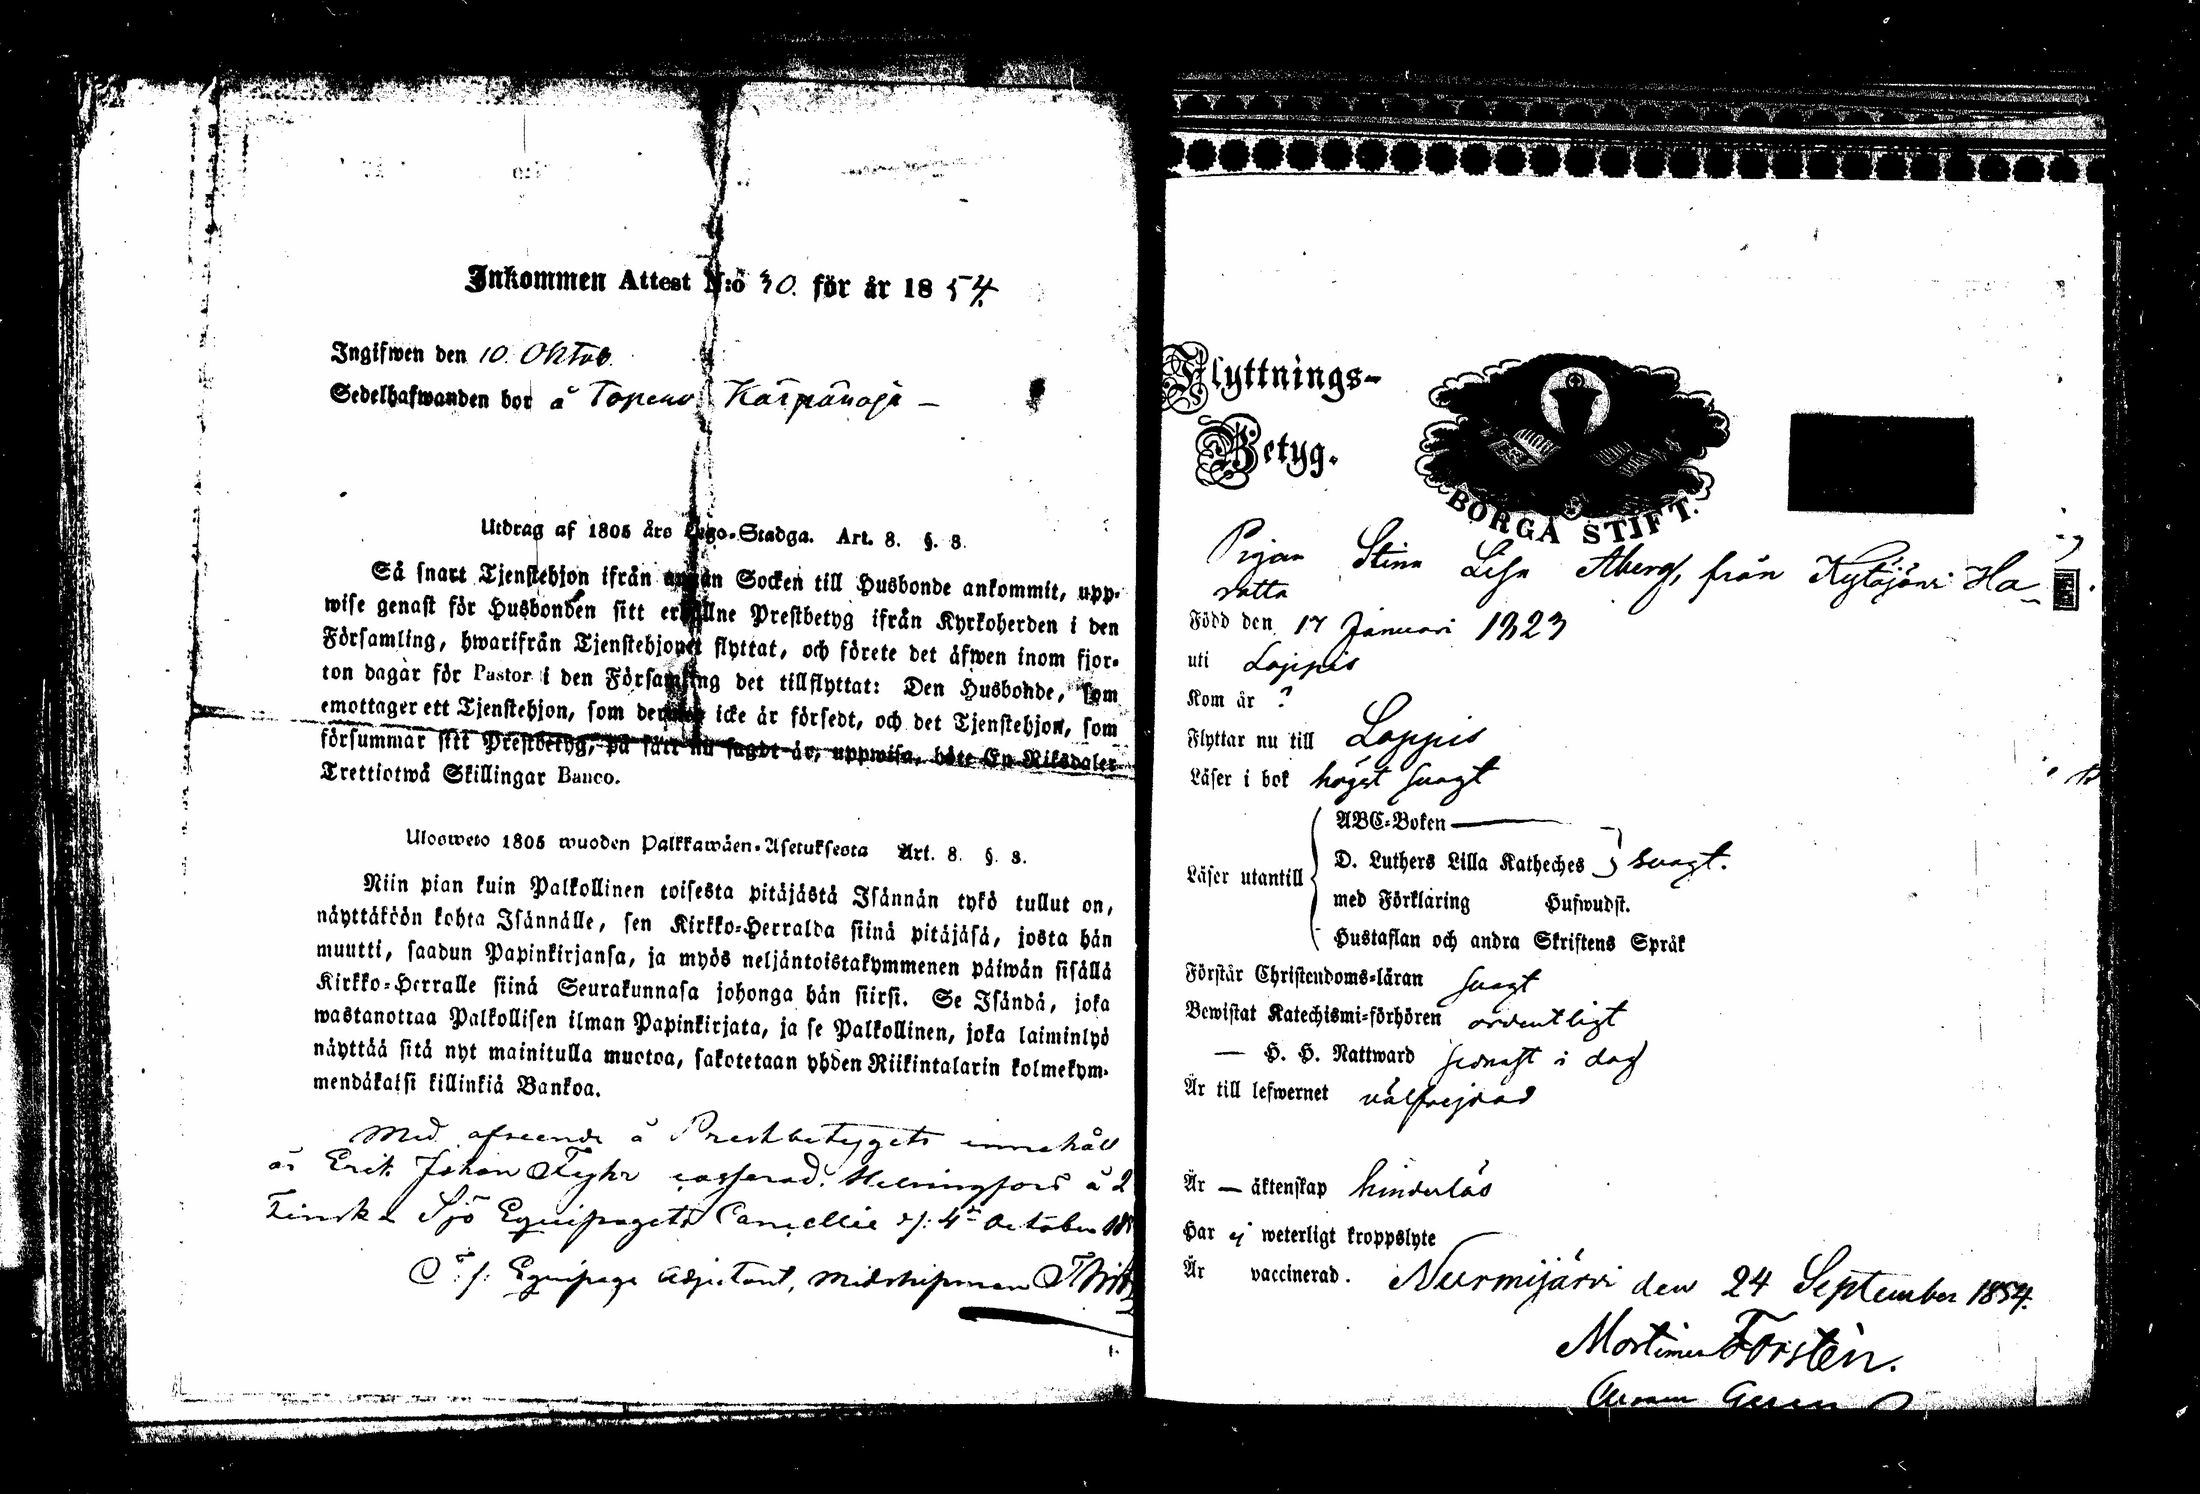 Inkommen Attest N:o 30. för år 1854.
Ingifwen den 10. Oktob.
Sedelhafwanden bor å Topeno Kärpänoja —
Utdrag af 1805 års Lego-Stadga. Art. 8. §. 8.
Så snart Tjenstehjon ifrån annan Socken till Husbonde ankommit, upp-
wise genast för Husbonden sitt erhållne Prestbetyg ifrån Kyrkoherden i den
Församling, hwarifrån Tjenstehjonet flyttat, och förete det äfwen inom fjor-
ton dagar för Pastor i den Församling det tillflyttat: Den Husbonde, som
emottager ett Tjenstehjon, som dermed icke är försedt, och det Tjenstehjon, som
försummar sitt Prestbetyg, på sätt nu sagdt är, uppwisa, böte En Riksdaler
Trettiotwå Skillingar Banco.
Ulosweto 1805 wuoden Palkkawäen-Asetuksesta Art. 8. §. 8.
Niin pian kuin Palkollinen toisesta pitäjästä Isännän tykö tullut on,
näyttäköön kohta Isännälle, sen Kirkko-Herralda siinä pitäjäsä, josta hän
muutti, saadun Papinkirjansa, ja myös neljäntoistakymmenen päiwän sisällä
Kirkko-Herralle siinä Seurakunnasa johonga hän siirsi. Se Isändä, joka
wastanottaa Palkollisen ilman Papinkirjata, ja se Palkollinen, joka laiminlyö
näyttää sitä nyt mainitulla muotoa, sakotetaan yhden Riikintalarin kolmekym-
mendäkaksi killinkiä Bankoa.
Med afseende å Prestbetygets innehåll
är Erik Johan Fyhr casserad. Helsingfors å 2
Finska Sjö Equipagets Cancellie d: 4de October 185
T: f: Equipage Adjutant, Midshipman
Flyttnings-
Betyg.
BORGÅ STIFT.
Pigan Stina Lisa Åberg, från Kytäjärvi Ha-
ratta
Född den 17 Januari 1823
uti Loppis
Kom år ?
Flyttar nu till Loppis
Läser i bok högst svagt
ABC-Boken —
D. Luthers Lilla Katheches } svagt.
Läser utantill
med Förklaring Hufwudst.
Hustaflan och andra Skriftens Språk
Förstår Christendoms-läran svagt
Bewistat Katechismi-förhören ordentligt
— H. H. Nattward senast i dag
Är till lefwernet välfrejdad
Är — äktenskap hinderlös
Har ej weterligt kroppslyte
Är vaccinerad. Nurmijärvi den 24 September 1854.
Mortimer Forstén.